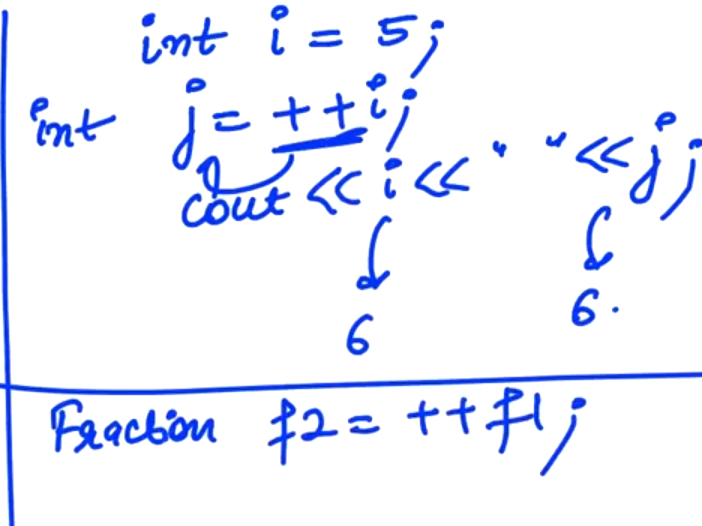 int i = 5;
int j = ++i;
cout << i << " " << j;
6 6.
Fraction f2 = ++f1;